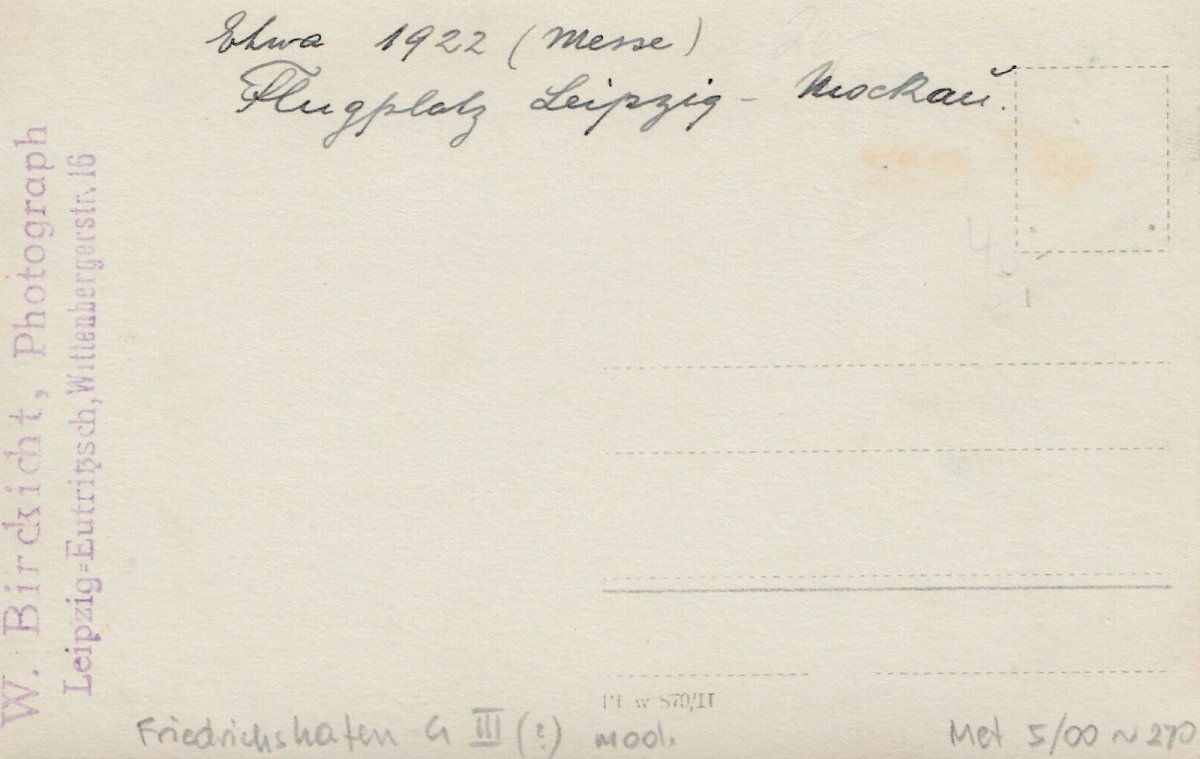 Etwa 1922 (Messe)
Flugplatz Leipzig - Mockau.
W. Birckicht, Photograph
Leipzig=Eutritzsch, Wittenbergerstr. 16
Friedrichshafen G III (?) mod.
Met 5/00 ~ 270